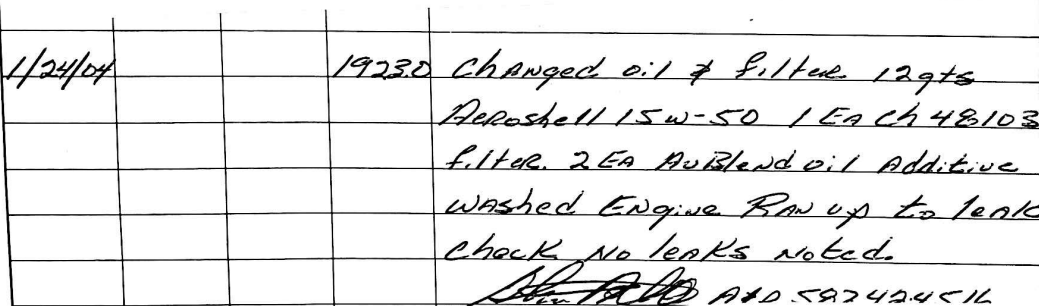 1/24/04 1923.0 Changed oil & filter 12qts
Aeroshell 15w-50 1 EA Ch48103
filter. 2 EA AvBlend oil Additive
washed Engine Ran up to leak
check No leaks Noted.
A&P